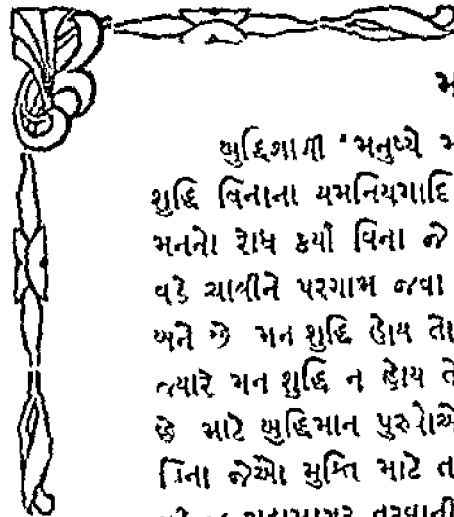 મ
બુદ્ધિશાળી મનુષ્યે મ
શુદ્ધિ વિનાના યમનિયમાદિ
મનનો રોધ કર્યા વિના જે
વડે ચાલીને પરગામ જવા
અને જે મન શુદ્ધિ હોય તો
જ્યારે મન શુદ્ધિ ન હોય તે
છે માટે બુદ્ધિમાન પુરુષોએ
વિના જેઓ મુક્તિ માટે ત